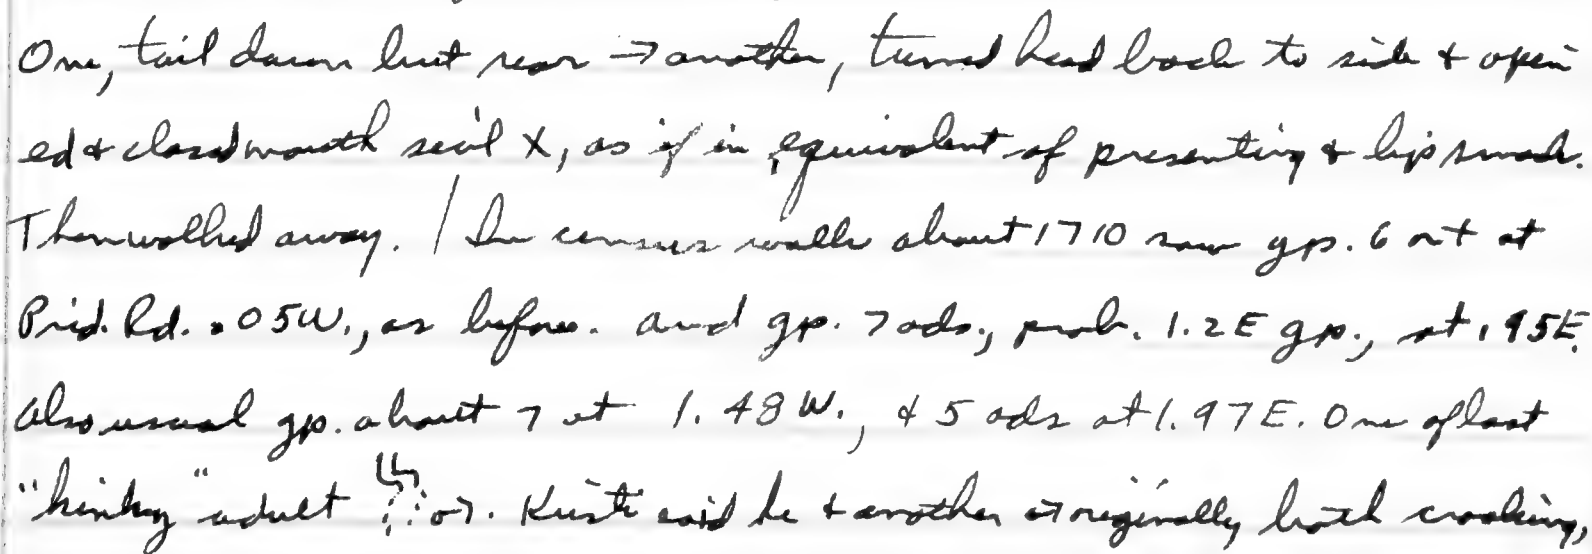 One, tail down but rear → another, turned head back to side & open
ed & closed mouth sev'l X, as if in equivalent of presenting & lip smack.
Then walked away. / In census walk about 1710 saw gp. 6 out at
Prid. Rd. .05W., as before. And gp. 7 ads., prob. 1.2E gp., at .95E.
Also usual gp. about 7 at 1.48W., & 5 ads at 1.97E. One of last
"kinky" adult ♂. Kristi said he & another ♂ originally both croaking,